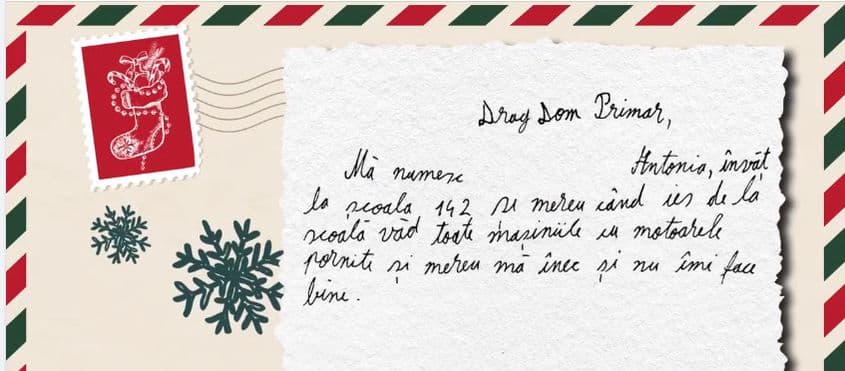 Drag Dom Primar,
Mă numesc Antonia, învăt
la școala 142 și mereu când ies de la
scoală văd toate mașiniile cu motoarele
pornite și mereu mă înec și nu îmi face
bine.